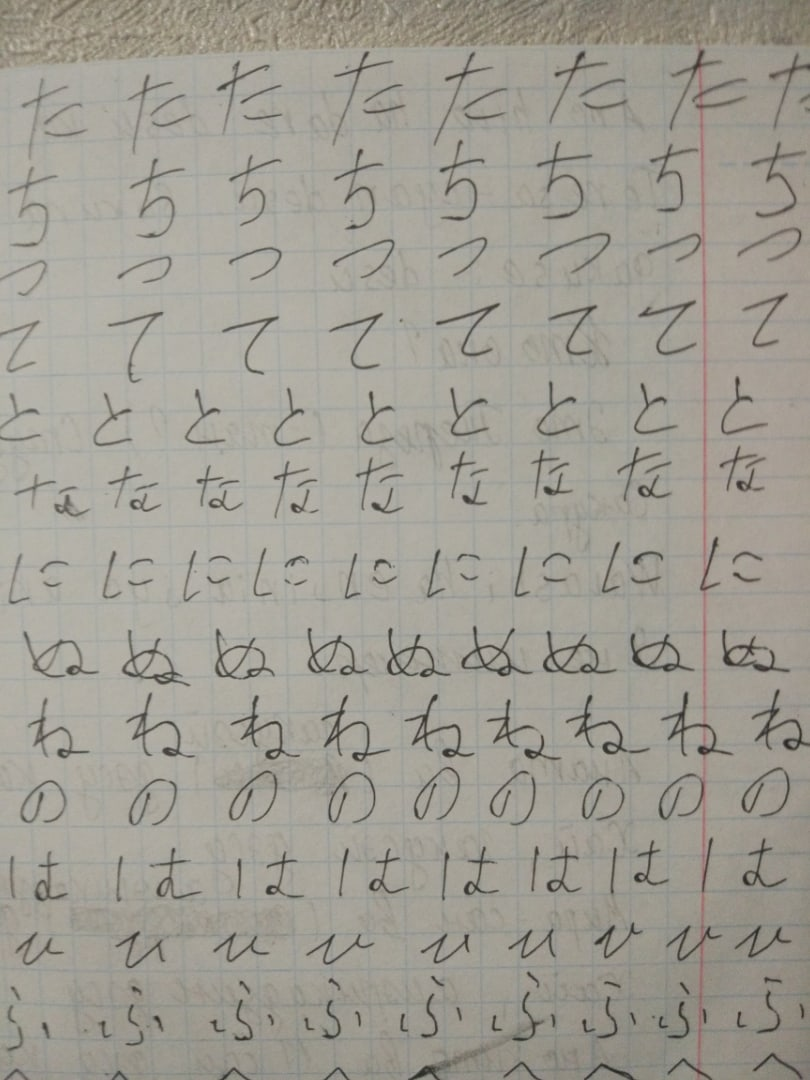 た た た た た た た た
ち ち ち ち ち ち ち ち
つ つ つ つ つ つ つ つ
て て て て て て て て
と と と と と と と と と
な な な な な な な な な
に に に に に に に に に
ぬ ぬ ぬ ぬ ぬ ぬ ぬ ぬ ぬ
ね ね ね ね ね ね ね ね ね
の の の の の の の の の
は は は は は は は は
ひ ひ ひ ひ ひ ひ ひ ひ ひ
ふ ふ ふ ふ ふ ふ ふ ふ ふ